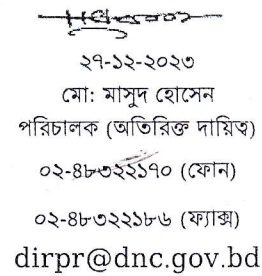 ২৭-১২-২০২৩
মো: মাসুদ হোসেন
পরিচালক (অতিরিক্ত দায়িত্ব)
০২-৪৮৩২২১৭০ (ফোন)
০২-৪৮৩২২১৮৬ (ফ্যাক্স)
dirpr@dnc.gov.bd